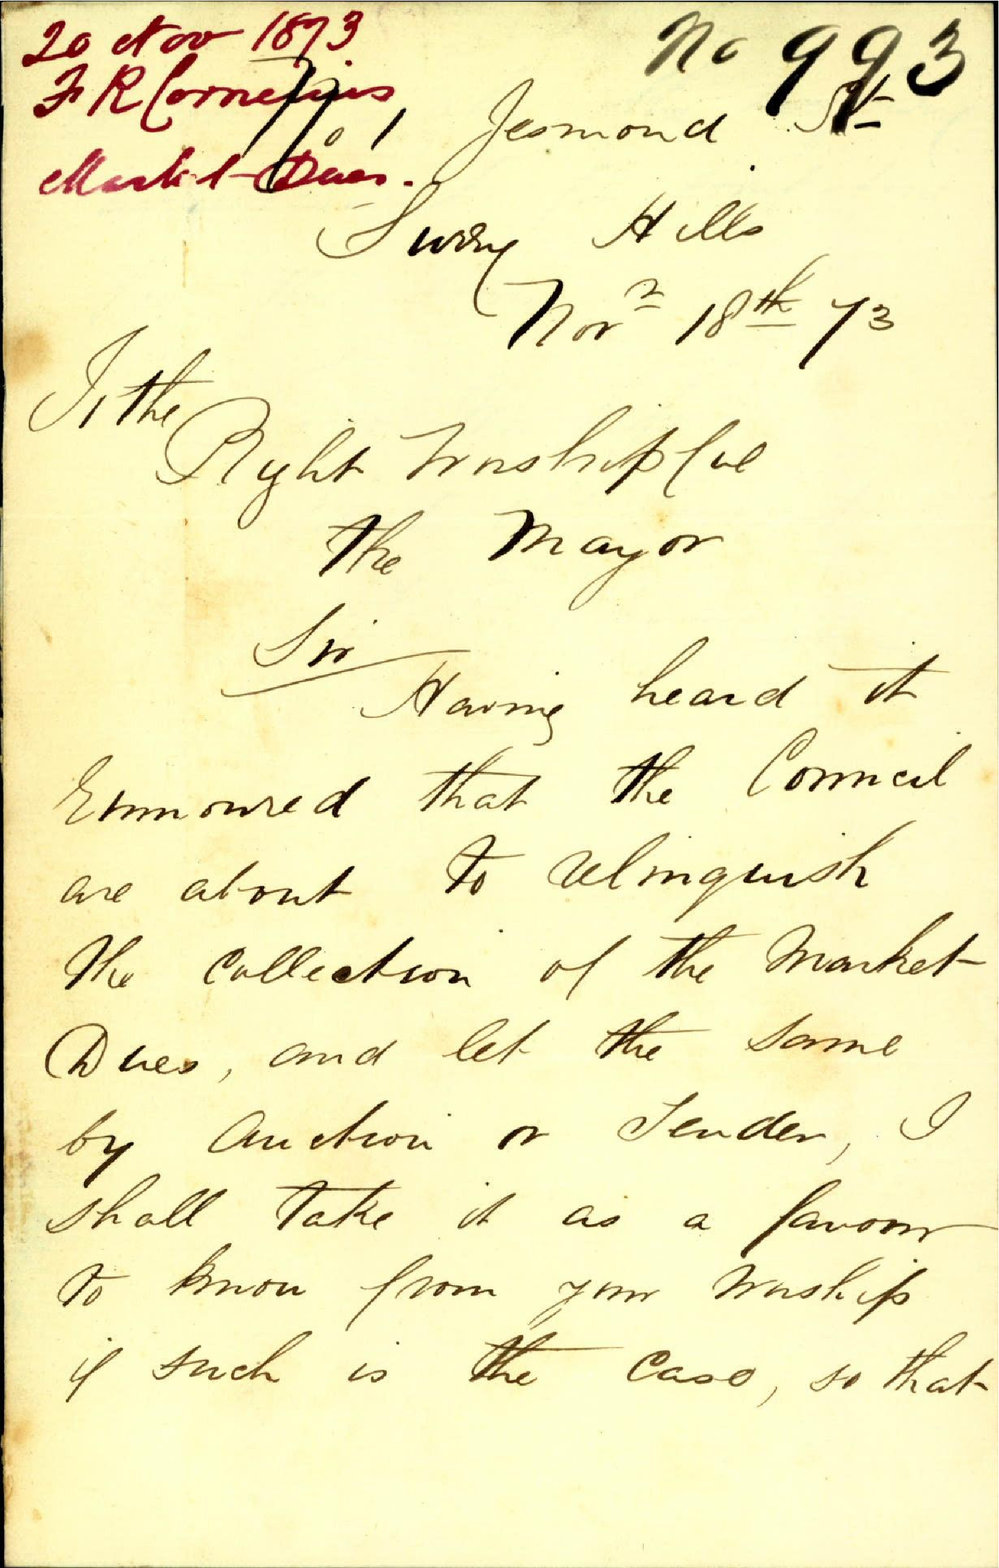 20 Nov 1873
F R Cornelius
Market Dues.
No 993
77
No 1 Jesmond St
Surry Hills
Novr 18th 73
To the
Right Worshipful
the Mayor
Sir
Having heard it
Rumoured that the Council
are about to relinquish
the Collection of the Market
Dues, and let the same
by Auction or Tender, I
shall take it as a favour
to know from your Worship
if such is the Case, so that